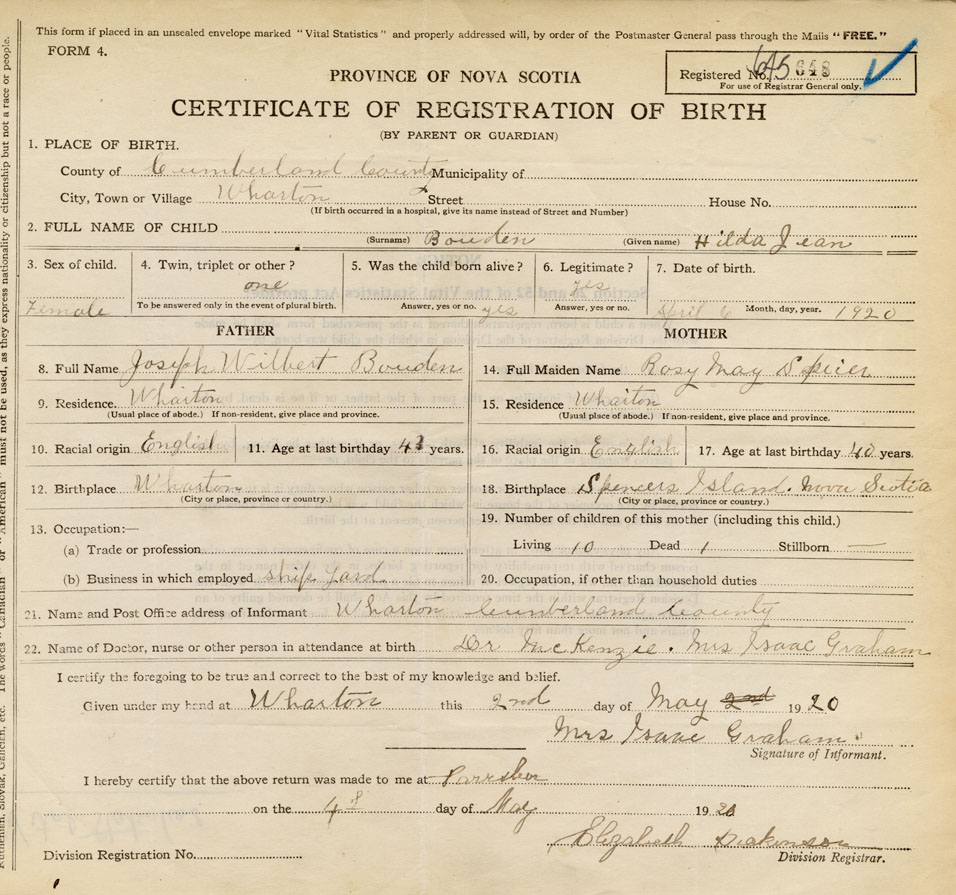 This form if placed in an unsealed envelope marked "Vital Statistics" and properly addressed will, by order of the Postmaster General pass through the Mails "FREE."
FORM 4.
Registered No. 648
For use of Registrar General only.
PROVINCE OF NOVA SCOTIA
CERTIFICATE OF REGISTRATION OF BIRTH
(BY PARENT OR GUARDIAN)
1. PLACE OF BIRTH.
County of Cumberland County Municipality of
City, Town or Village Wharton Street House No.
(If birth occurred in a hospital, give its name instead of Street and Number)
2. FULL NAME OF CHILD (Surname) Bouden (Given name) Hilda Jean
3. Sex of child. 4. Twin, triplet or other? 5. Was the child born alive? 6. Legitimate? 7. Date of birth.
one yes
To be answered only in the event of plural birth.
Female Answer, yes or no. yes Answer, yes or no. April 6 Month, day, year. 1920
FATHER
8. Full Name Joseph Wilbert Bouden
9. Residence. Wharton
(Usual place of abode.) If non-resident, give place and province.
10. Racial origin English 11. Age at last birthday years.
12. Birthplace Wharton
(City or place, province or country.)
13. Occupation:—
(a) Trade or profession
(b) Business in which employed ship yard
MOTHER
14. Full Maiden Name Rosy May Spicer
15. Residence Wharton
(Usual place of abode.) If non-resident, give place and province.
16. Racial origin English 17. Age at last birthday 40 years.
18. Birthplace Spencers Island. Nova Scotia
(City or place, province or country.)
19. Number of children of this mother (including this child.)
Living 10 Dead 1 Stillborn —
20. Occupation, if other than household duties
21. Name and Post Office address of Informant Wharton Cumberland County
22. Name of Doctor, nurse or other person in attendance at birth Dr McKenzie. Mrs Isaac Graham
I certify the foregoing to be true and correct to the best of my knowledge and belief.
Given under my hand at Wharton this 2nd day of May 2nd 1920
Mrs Isaac Graham
Signature of Informant.
I hereby certify that the above return was made to me at Parrsboro
on the 4th day of May 1920
Elizabeth Dickinson
Division Registrar.
Division Registration No.
Ruthenian, Slovak, Galician, etc. The words "Canadian" or "American" must not be used, as they express nationality or citizenship but not a race or people.